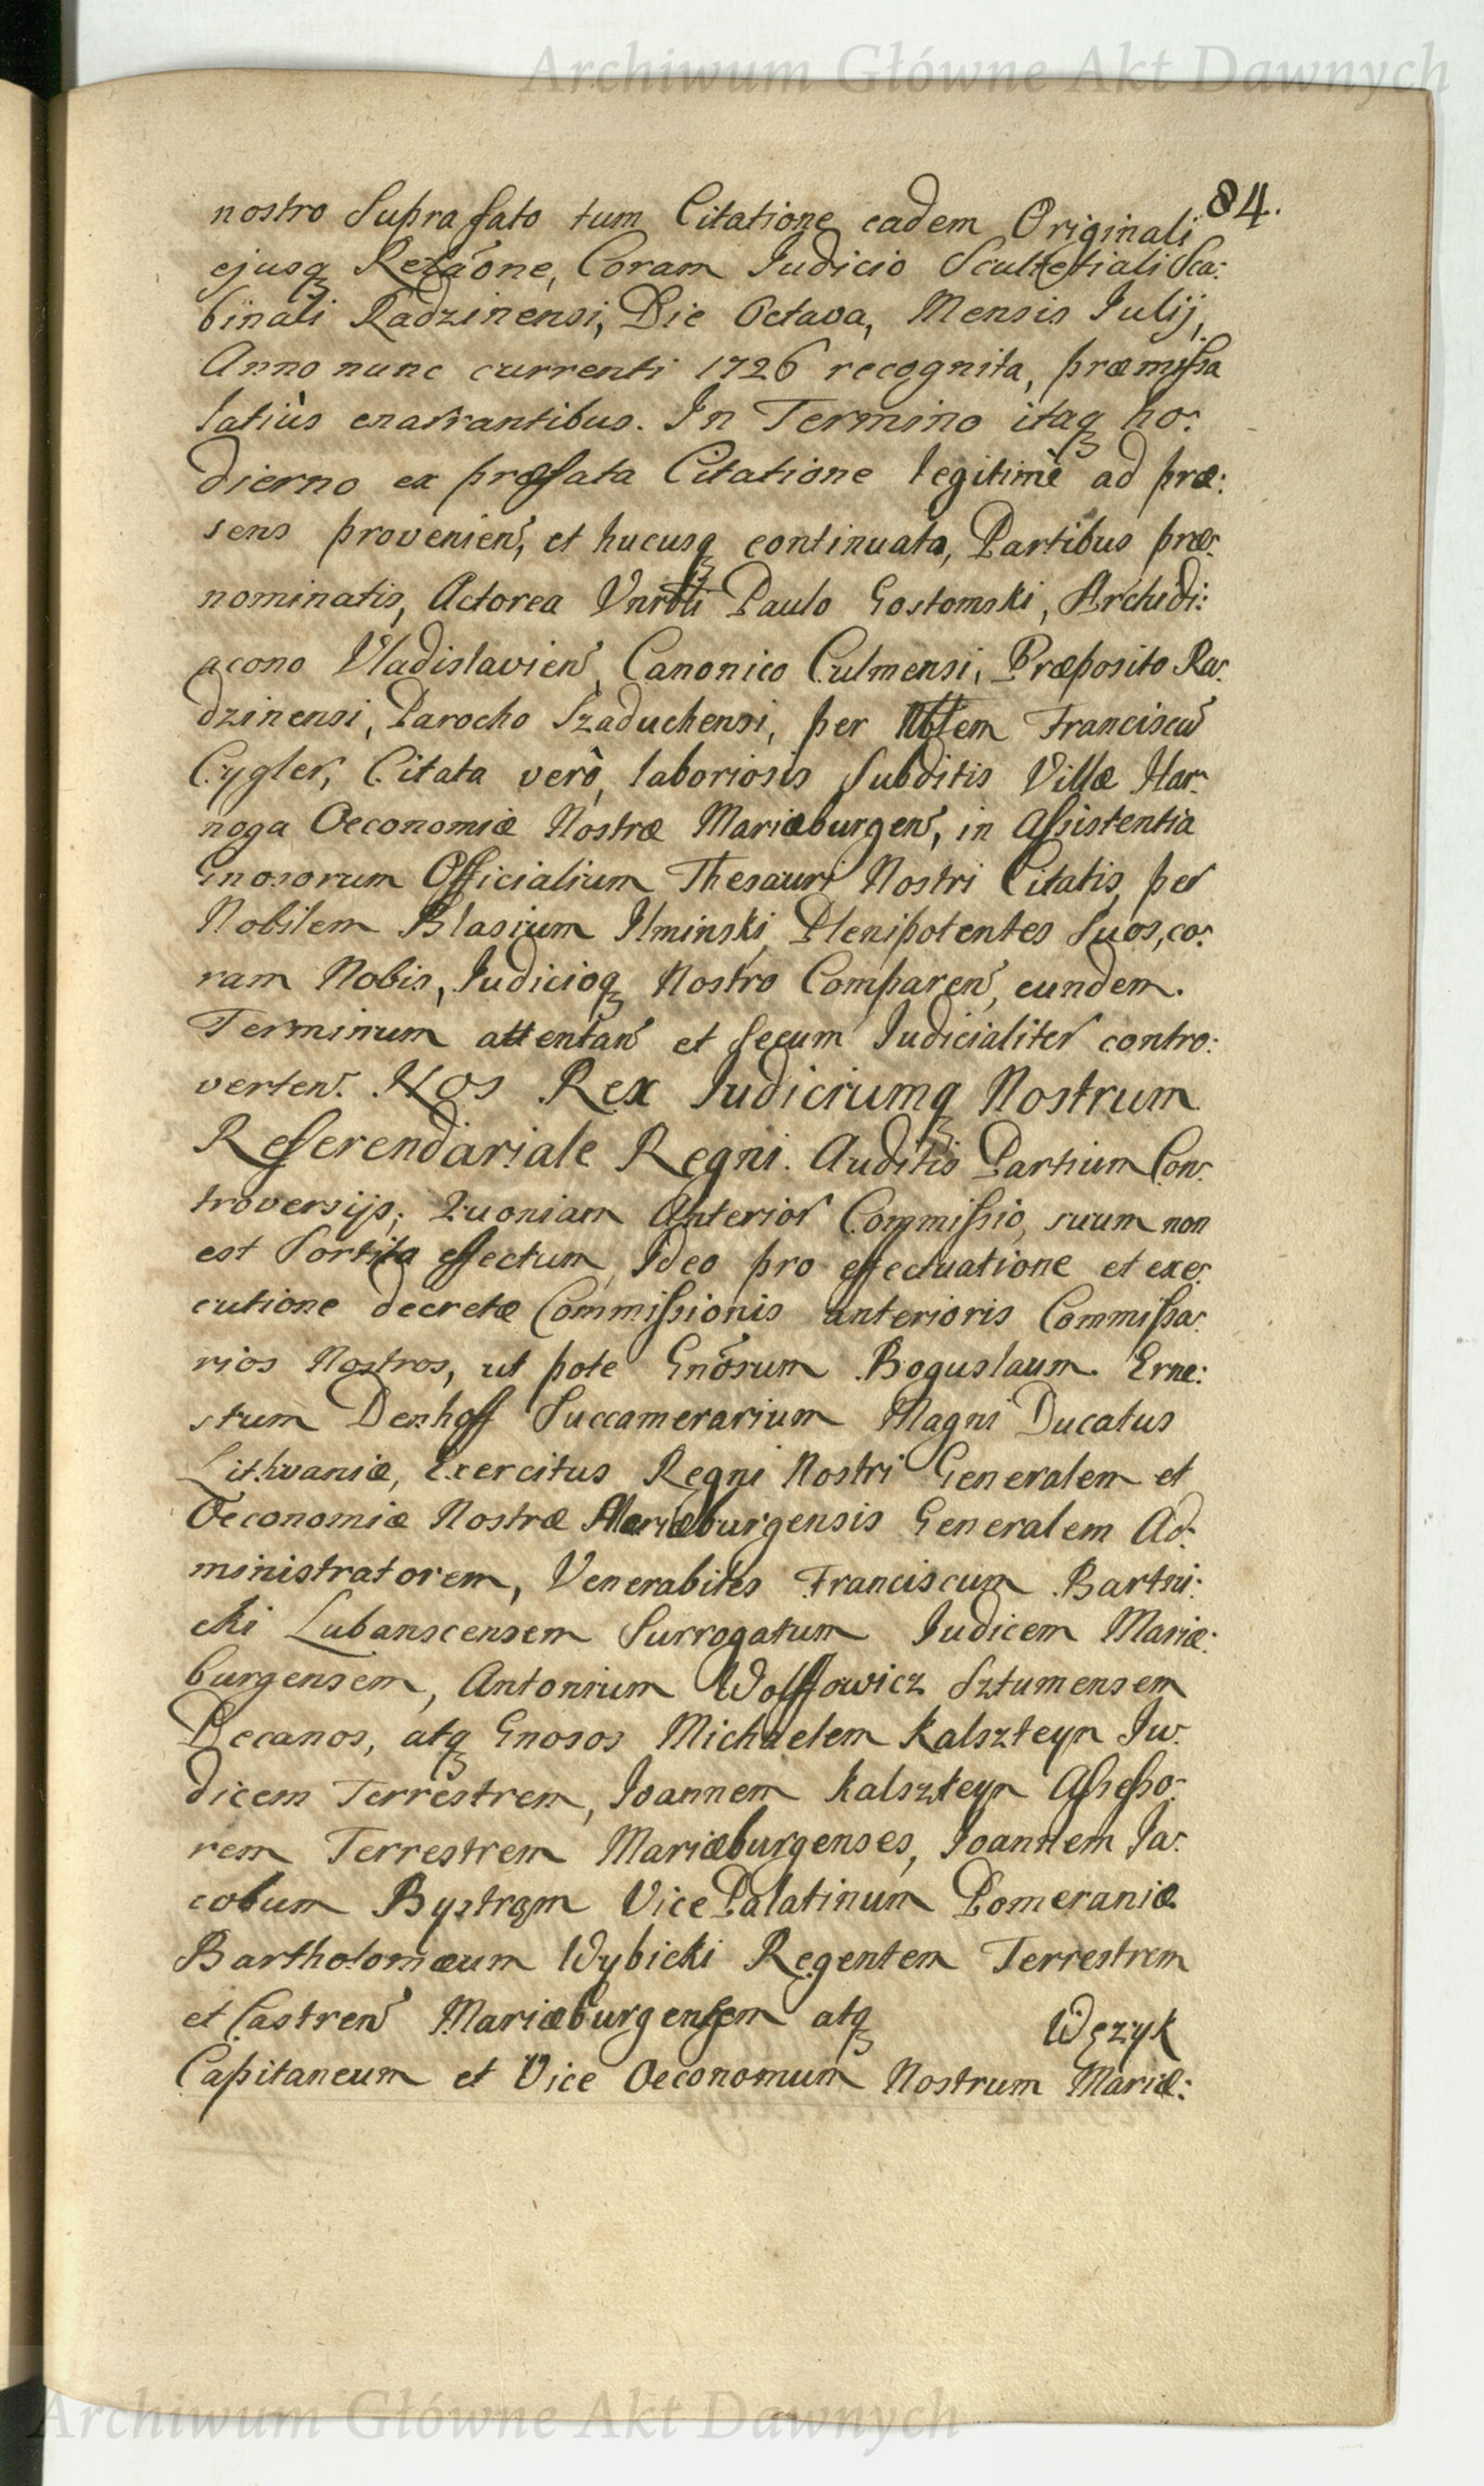 Archiwum Główne Akt Dawnych
84.
nostro Supra fato tum Citatione eadem Originali
ejusq Relaõne, Coram Judicio Scultetiali Sca:
binali Radzinensi, Die Octava, Mensis Julij,
Anno nunc currenti 1726 recognita, præmissa
latiùs enarrantibus. In Termino itaq ho:
dierno ex præfata Citatione legitimè ad præ:
sens provenien, et hucusq continuato, Partibus præ:
nominatis, Actorea Vnrbli Paulo Gostomski, Archidi:
acono Vladislavien, Canonico Culmensi, Præposito Ra:
dzinensi, Parocho Szaduchensi, per Nblem Franciscu
Cygler, Citata verò, laboriosis Subditis Villæ Har:
noga Oeconomiæ Nostræ Mariæburgen, in Assistentia
Gnosorum Officialium Thesauri Nostri Citatis, per
Nobilem Blasium Ilminski, Plenipotentes Suos, co:
ram Nobis, Judicioq Nostro Comparen, eundem.
Terminum attentan et Secum Judicialiter contro:
verten. Nos Rex Judiciumq Nostrum
Referendariale Regni. Auditis Partium Con:
troversijs; Quoniam Anterior Commissio, suum non
est Sortita effectum, Ideo pro effectuatione et exe:
cutione decretæ Commissionis anterioris Commissa:
rios Nostros, ut pote Gnõsum Boguslaum Erne:
stum Denhoff Succamerarium Magni Ducatus
Lithvaniæ, Exercitus Regni Nostri Generalem et
Oeconomiæ Nostræ Mariæburgensis Generalem Ad:
ministratorem, Venerabiles Franciscum Bartni:
cki Lubanscensem Surrogatum Judicem Mariæ:
burgensem, Antonium Wolffowicz Sztumensem
Decanos, atq Gnosos Michaelem Kalszteyn Ju:
dicem Terrestrem, Joannem Kalszteyn Assesso:
rem Terrestrem Mariæburgenses, Joannem Ja:
cobum Bystram Vice Palatinum Pomeraniæ
Bartholomæum Wybicki Regentem Terrestrem
et Castren Mariæburgensem atq Węzyk
Capitaneum et Vice Oeconomum Nostrum Mariæ:
Archiwum Główne Akt Dawnych